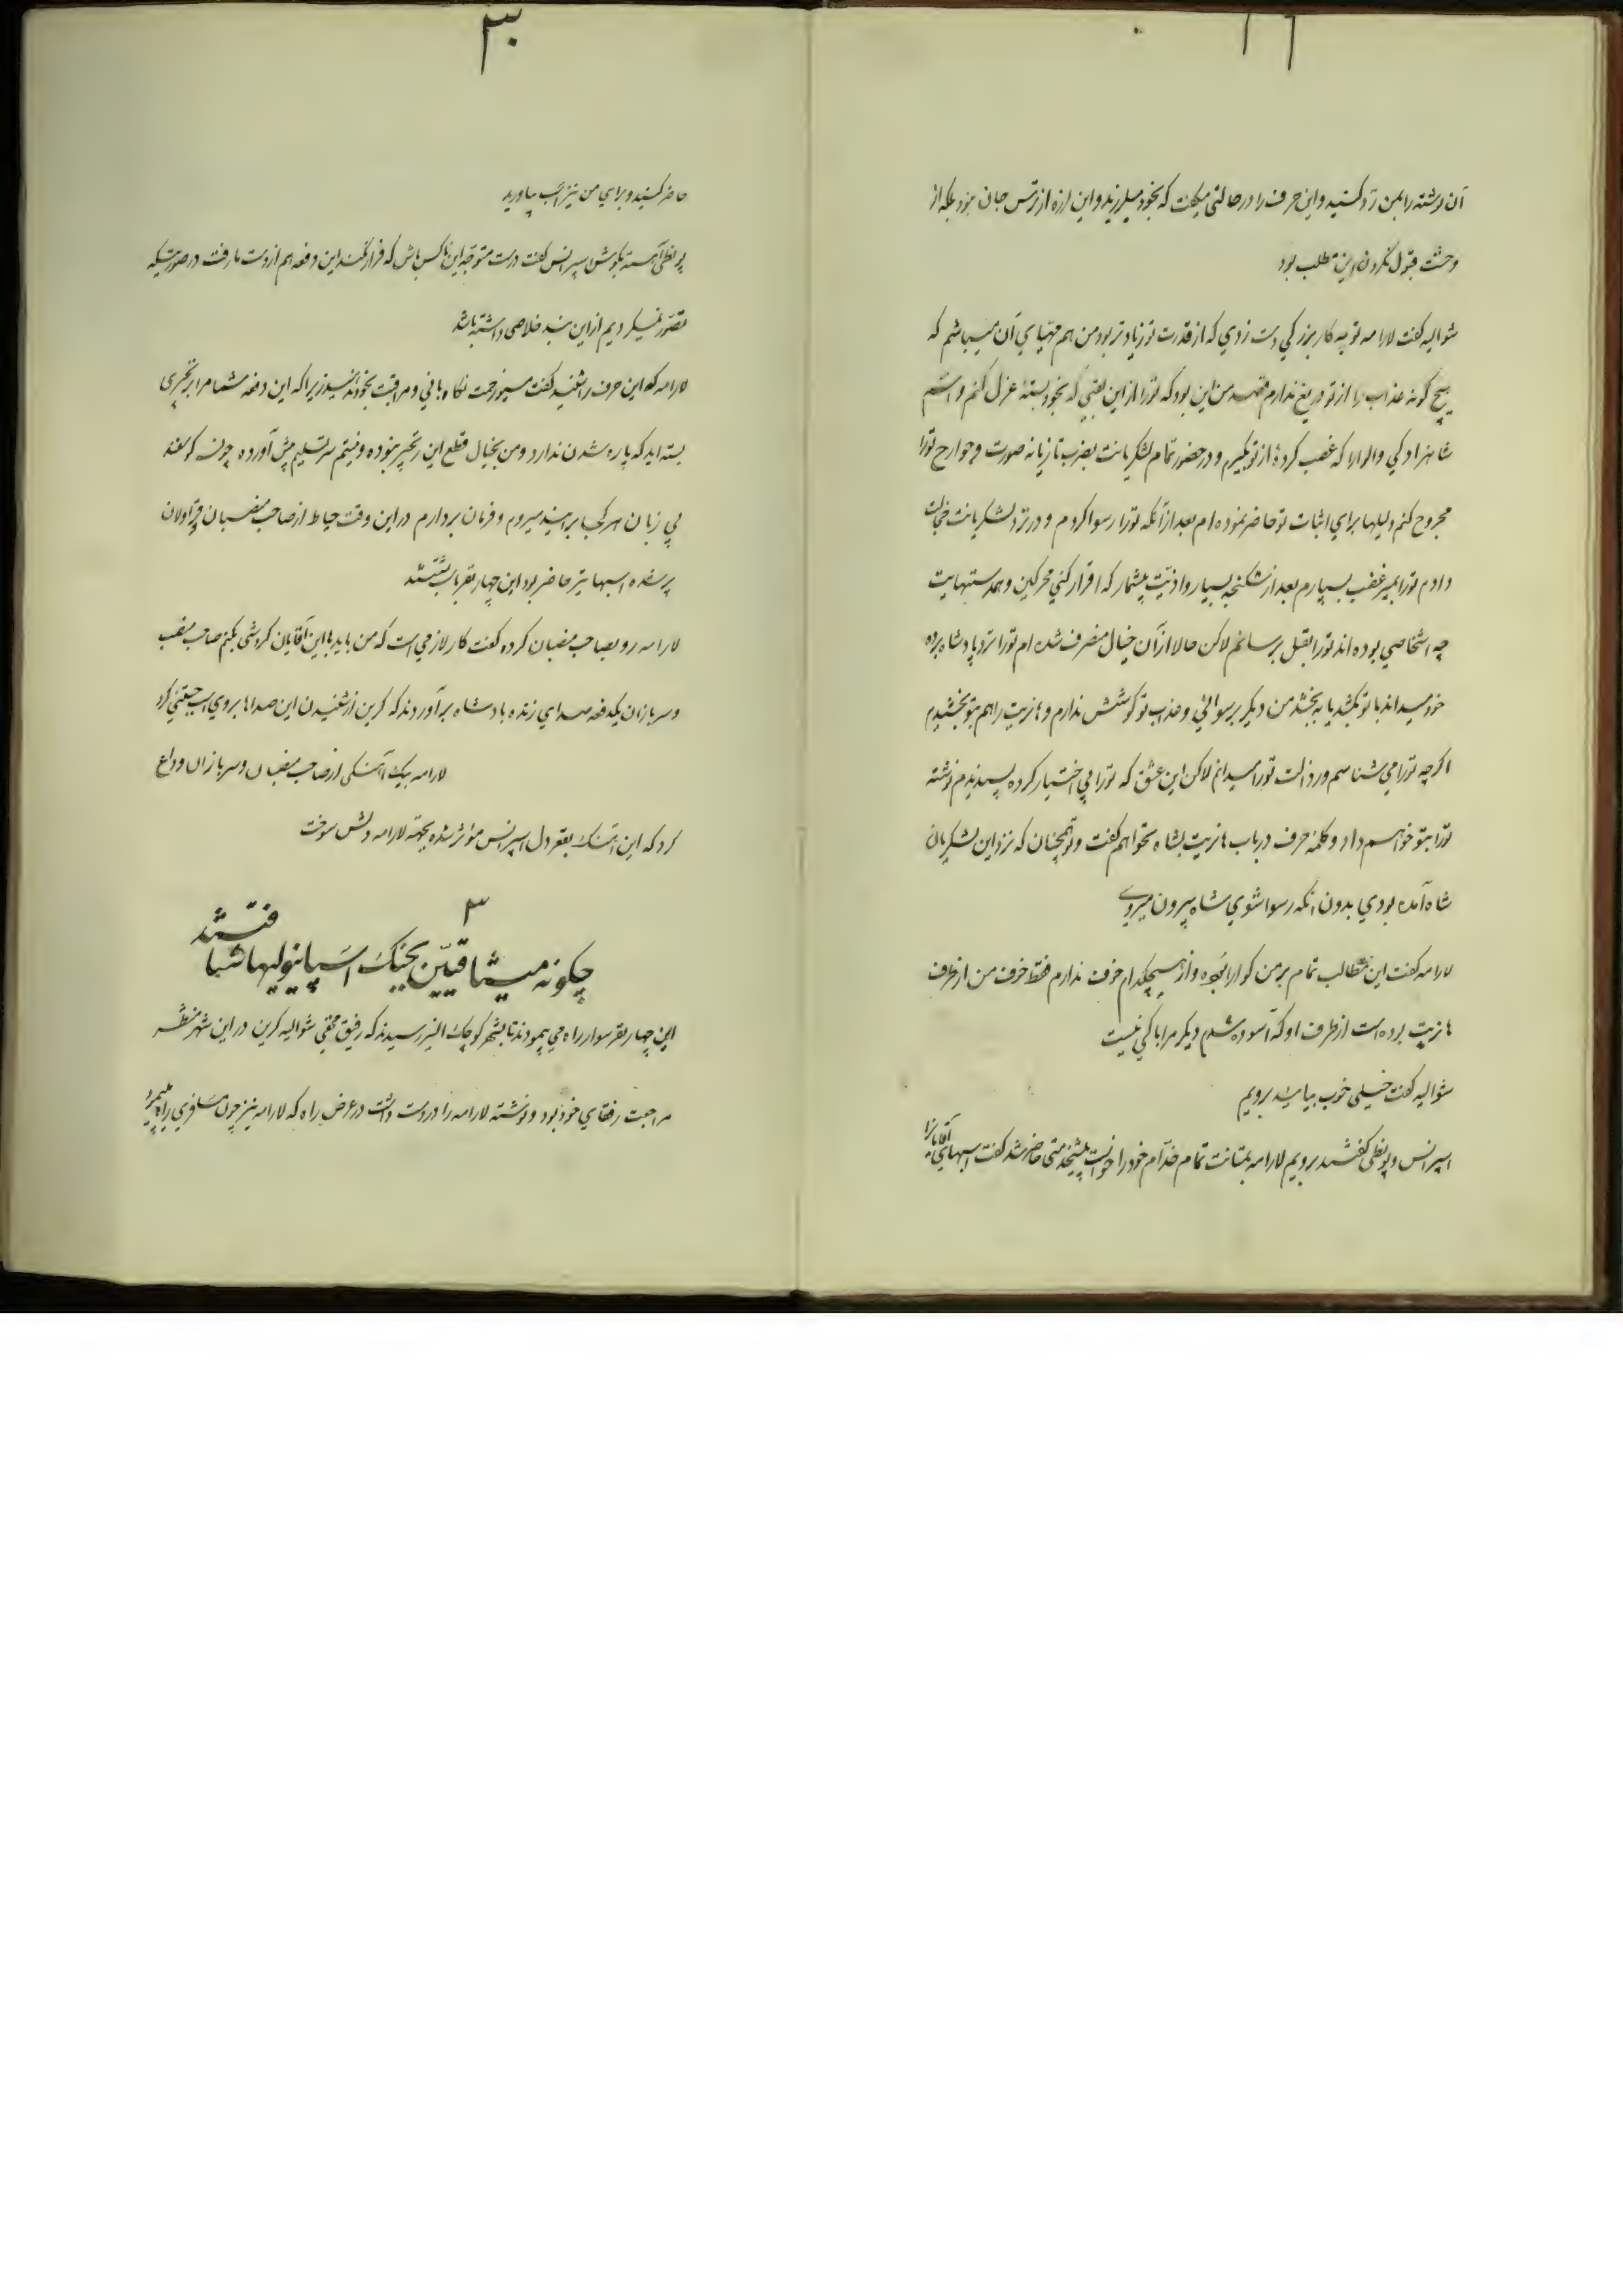 آن نوشته را بمن رد کنید و این حرف را در حالتی میگفت که بخود میلرزید و این لرزه از ترس جان نبود بلکه از
وحشت قبول نکردن این مطلب بود
شوالیه گفت لارامه تو به کار بزرگی دست زدی که از قدرت تو زیادتر بود من هم مهیای آن میباشم که
هیچ گونه عذاب را از تو دریغ ندارم قصد من این بود که تو را از این لقبی که بخود بسته عزل کنم و اسم
شاهزادگی والوارا که غصب کردهٔ از تو بگیرم و در حضور تمام لشکریانت بضرب تازیانه صورت و جوارح تو را
مجروح کنم دلیلها برای اثبات تو حاضر نموده‌ام بعد از آنکه تو را رسوا کردم و در نزد لشکریانت خجالت
دادم تو را بمیر غضب بسپارم بعد از شکنجه بسیار و اذیت بیشمار که اقرار کنی محرکین و همدستهایت
چه اشخاصی بوده اند تو را بقتل برسانم لاکن حالا از آن خیال منصرف شده ام تو را نزد پادشاه برده
خود میداند یا تو بکشد یا به بخشد من دیگر برسوائی و عذاب تو کوشش ندارم و هانریت را هم بتو بخشیدم
اگرچه تو را می شناسم و رذالت تو را میدانم لاکن این عشق که تو را بی اختیار کرده پسندیدم نوشته
تو را بتو خواهم داد و کلمهٔ حرف در باب هانریت بشاه نخواهم گفت و تو همچنان که نزد این لشکریان
شاه آمده بودی بدون آنکه رسوا شوی شاه بیرون میروی
لارامه گفت این مطالب تمام بر من گوارا بوده و از هیچکدام خوف ندارم فقط خوف من از طرف
هانریت بوده است از طرف او که آسوده شدم دیگر مرا باکی نیست
شوالیه گفت خیلی خوب بیایید برویم
اسپرانس و پونطی گفتند برویم لارامه بمتانت تمام خدام خود را خواست پیشخدمتی حاضر شد گفت اسبهای آقایان را
۳۰
حاضر کنید و برای من نیز اسب بیاورید
پونطی آهسته بگوش اسپرانس گفت درست متوجه این ناکس باش که فرار نکند این دفعه هم از دست ما رفت در صورتیکه
تصور نمیکردیم از این بند خلاصی داشته باشد
لارامه که این حرف را شنید گفت مسیو زحمت نگاه بانی و مراقبت بخود ندهید زیرا که این دفعه شما مرا بزنجیری
بسته اید که پاره شدن ندارد و من بخیال قطع این زنجیر نبوده و نیستم سر تسلیم پیش آورده چون گوسفند
بی زبان هر کجا ببرانید میروم و فرمان بردارم در این وقت حیاط از صاحب منصبان و قراولان
پر شده اسبها نیز حاضر بود این چهار نفر باسب نشستند
لارامه رو بصاحب منصبان کرده گفت کار لازمی است که من باید با این آقایان گردشی بکنم صاحب منصب
و سربازان یکدفعه صدای زنده باد شاه برآوردند که کرین از شنیدن این صداها بروی اسب جستنی کرد
لارامه بیک آهنگی از صاحب منصبان و سربازان وداع
کرد که این آهنگ بقعر دل اسپرانس مؤثر شده بجهة لارامه دلش سوخت
۳
چگونه میشاقین بجنگ اسپانیولیها شتافتند
این چهار نفر سوار راه می پیمودند تا بشهر کوچک الیز رسیدند که رفیق مخفی شوالیه کرین در این شهر منتظر
مراجعت رفقای خود بود و نوشته لارامه را در دست داشت در عرض راه که لارامه نیز چون مسافری راه میپیمود